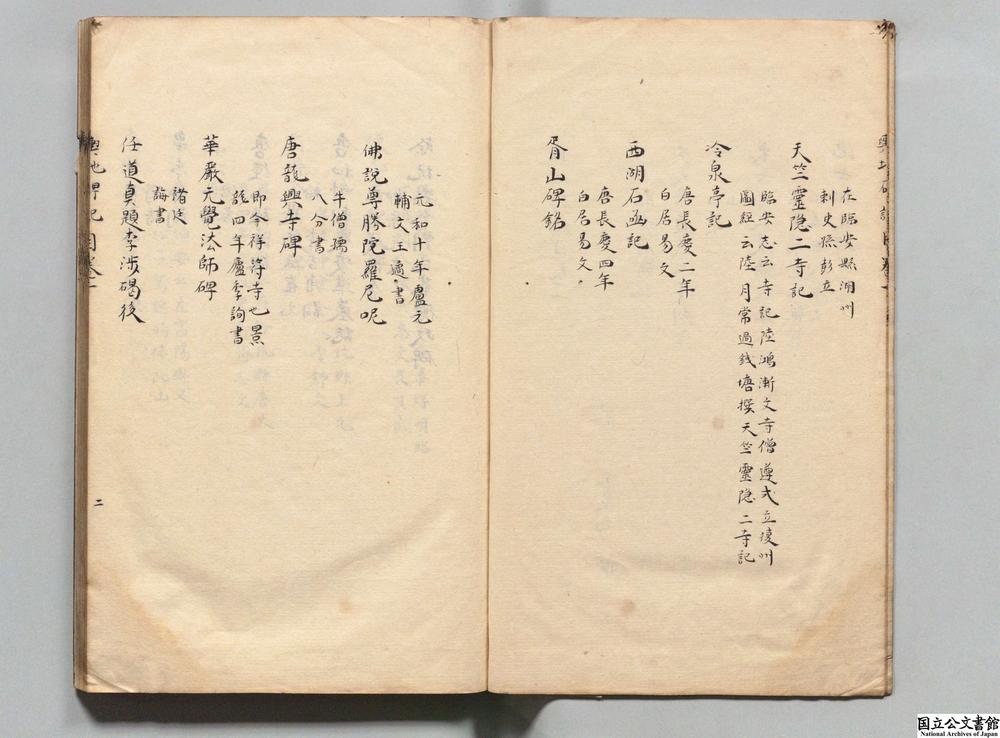 在臨安縣湖州
刺史孫彭立
天竺靈隐二寺記
臨安志云寺記陸鴻漸文寺僧遵式立復州
圖經云陸月常過錢塘撰天竺靈隐二寺記
冷泉亭記
唐長慶二年
白居易文
西湖石函記
唐長慶四年
白居易文
胥山碑銘
元和十年盧元
輔文王遹書
佛說尊勝陀羅尼呪
牛僧孺
八分書
唐龍興寺碑
即今祥符寺也景
龍四年盧季詢書
華嚴元覺法師碑
諸廷
誨書
任道真題李涉碣後
輿地碑記目卷一
二
国立公文書館
National Archives of Japan